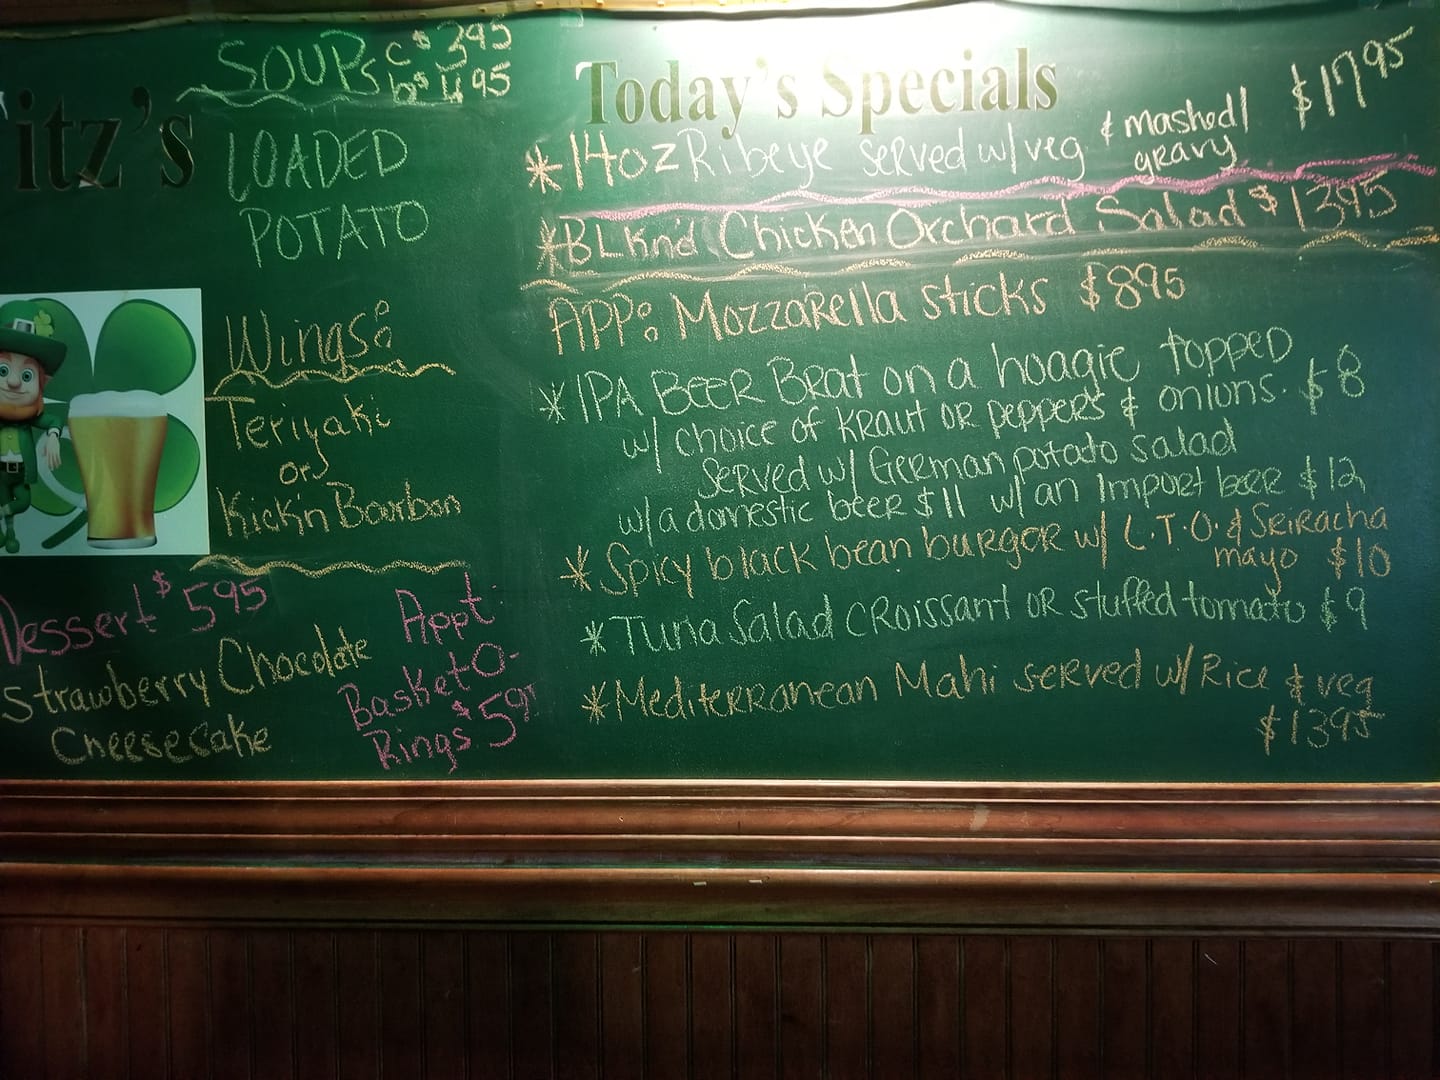 itz's
SOUPs c $3.95
b $4.95
LOADED
POTATO
Wings:
Teriyaki
or
Kick'n Bourbon
Dessert $5.95
Strawberry Chocolate
Cheesecake
Appt:
Basket O-
Rings $5.95
Today's Specials
*14oz Ribeye served w/ veg & mashed/ $17.95
gravy
*BLKnd Chicken Orchard Salad $13.95
APP: Mozzarella sticks $8.95
*IPA BEER Brat on a hoagie topped
w/ choice of KRAUT OR peppers & onions. $8
served w/ German potato salad
w/ a domestic beer $11 w/ an Import beer $12
*Spicy black bean burger w/ L.T.O. & Sriracha
mayo $10
*Tuna Salad CROISSANT OR stuffed tomato $9
*Mediterranean Mahi served w/ Rice & veg
$13.95